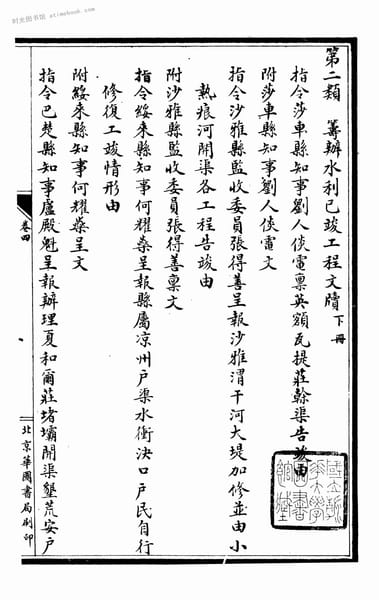 第二類　籌辦水利已竣工程文牘下冊
指令莎車縣知事劉人倓電稟英額瓦提莊幹渠告竣由
附莎車縣知事劉人倓電文
指令沙雅縣監收委員張得善呈報沙雅渭干河大堤加修並由小
熱痕河開渠各工程告竣由
附沙雅縣監收委員張得善稟文
指令綏來縣知事何耀燊呈報縣屬凉州戶渠水衝決口戶民自行
修復工竣情形由
附綏來縣知事何耀燊呈文
指令巴楚縣知事盧殿魁呈報辦理夏和爾莊堵壩開渠墾荒安戶
卷四
北京華國書局刷印
时光图书馆 atimebook.com